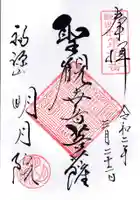 奉拝
令和二年
二月二十一日
聖観世音菩薩
福源山
明月院